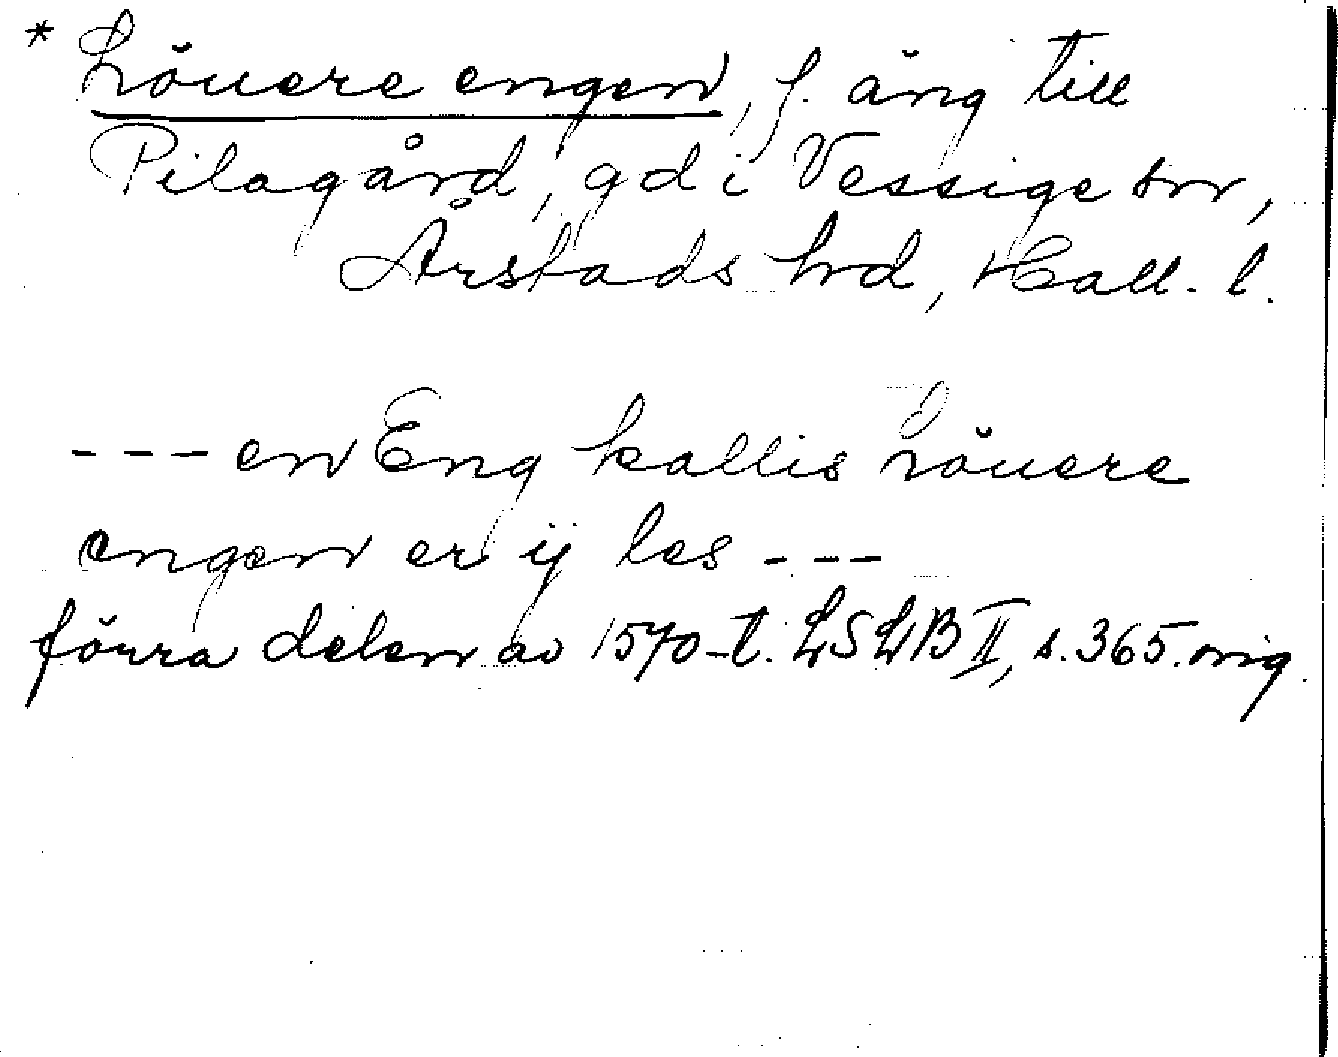 * Löuere engen, f. äng till
Pilagård, gd i Vessige sn,
Årstads hd, Hall. l.
--- en Eng kallis Löuere
engen er ij les ---
förra delen av 1570-t. LSLB II, s. 365. orig.